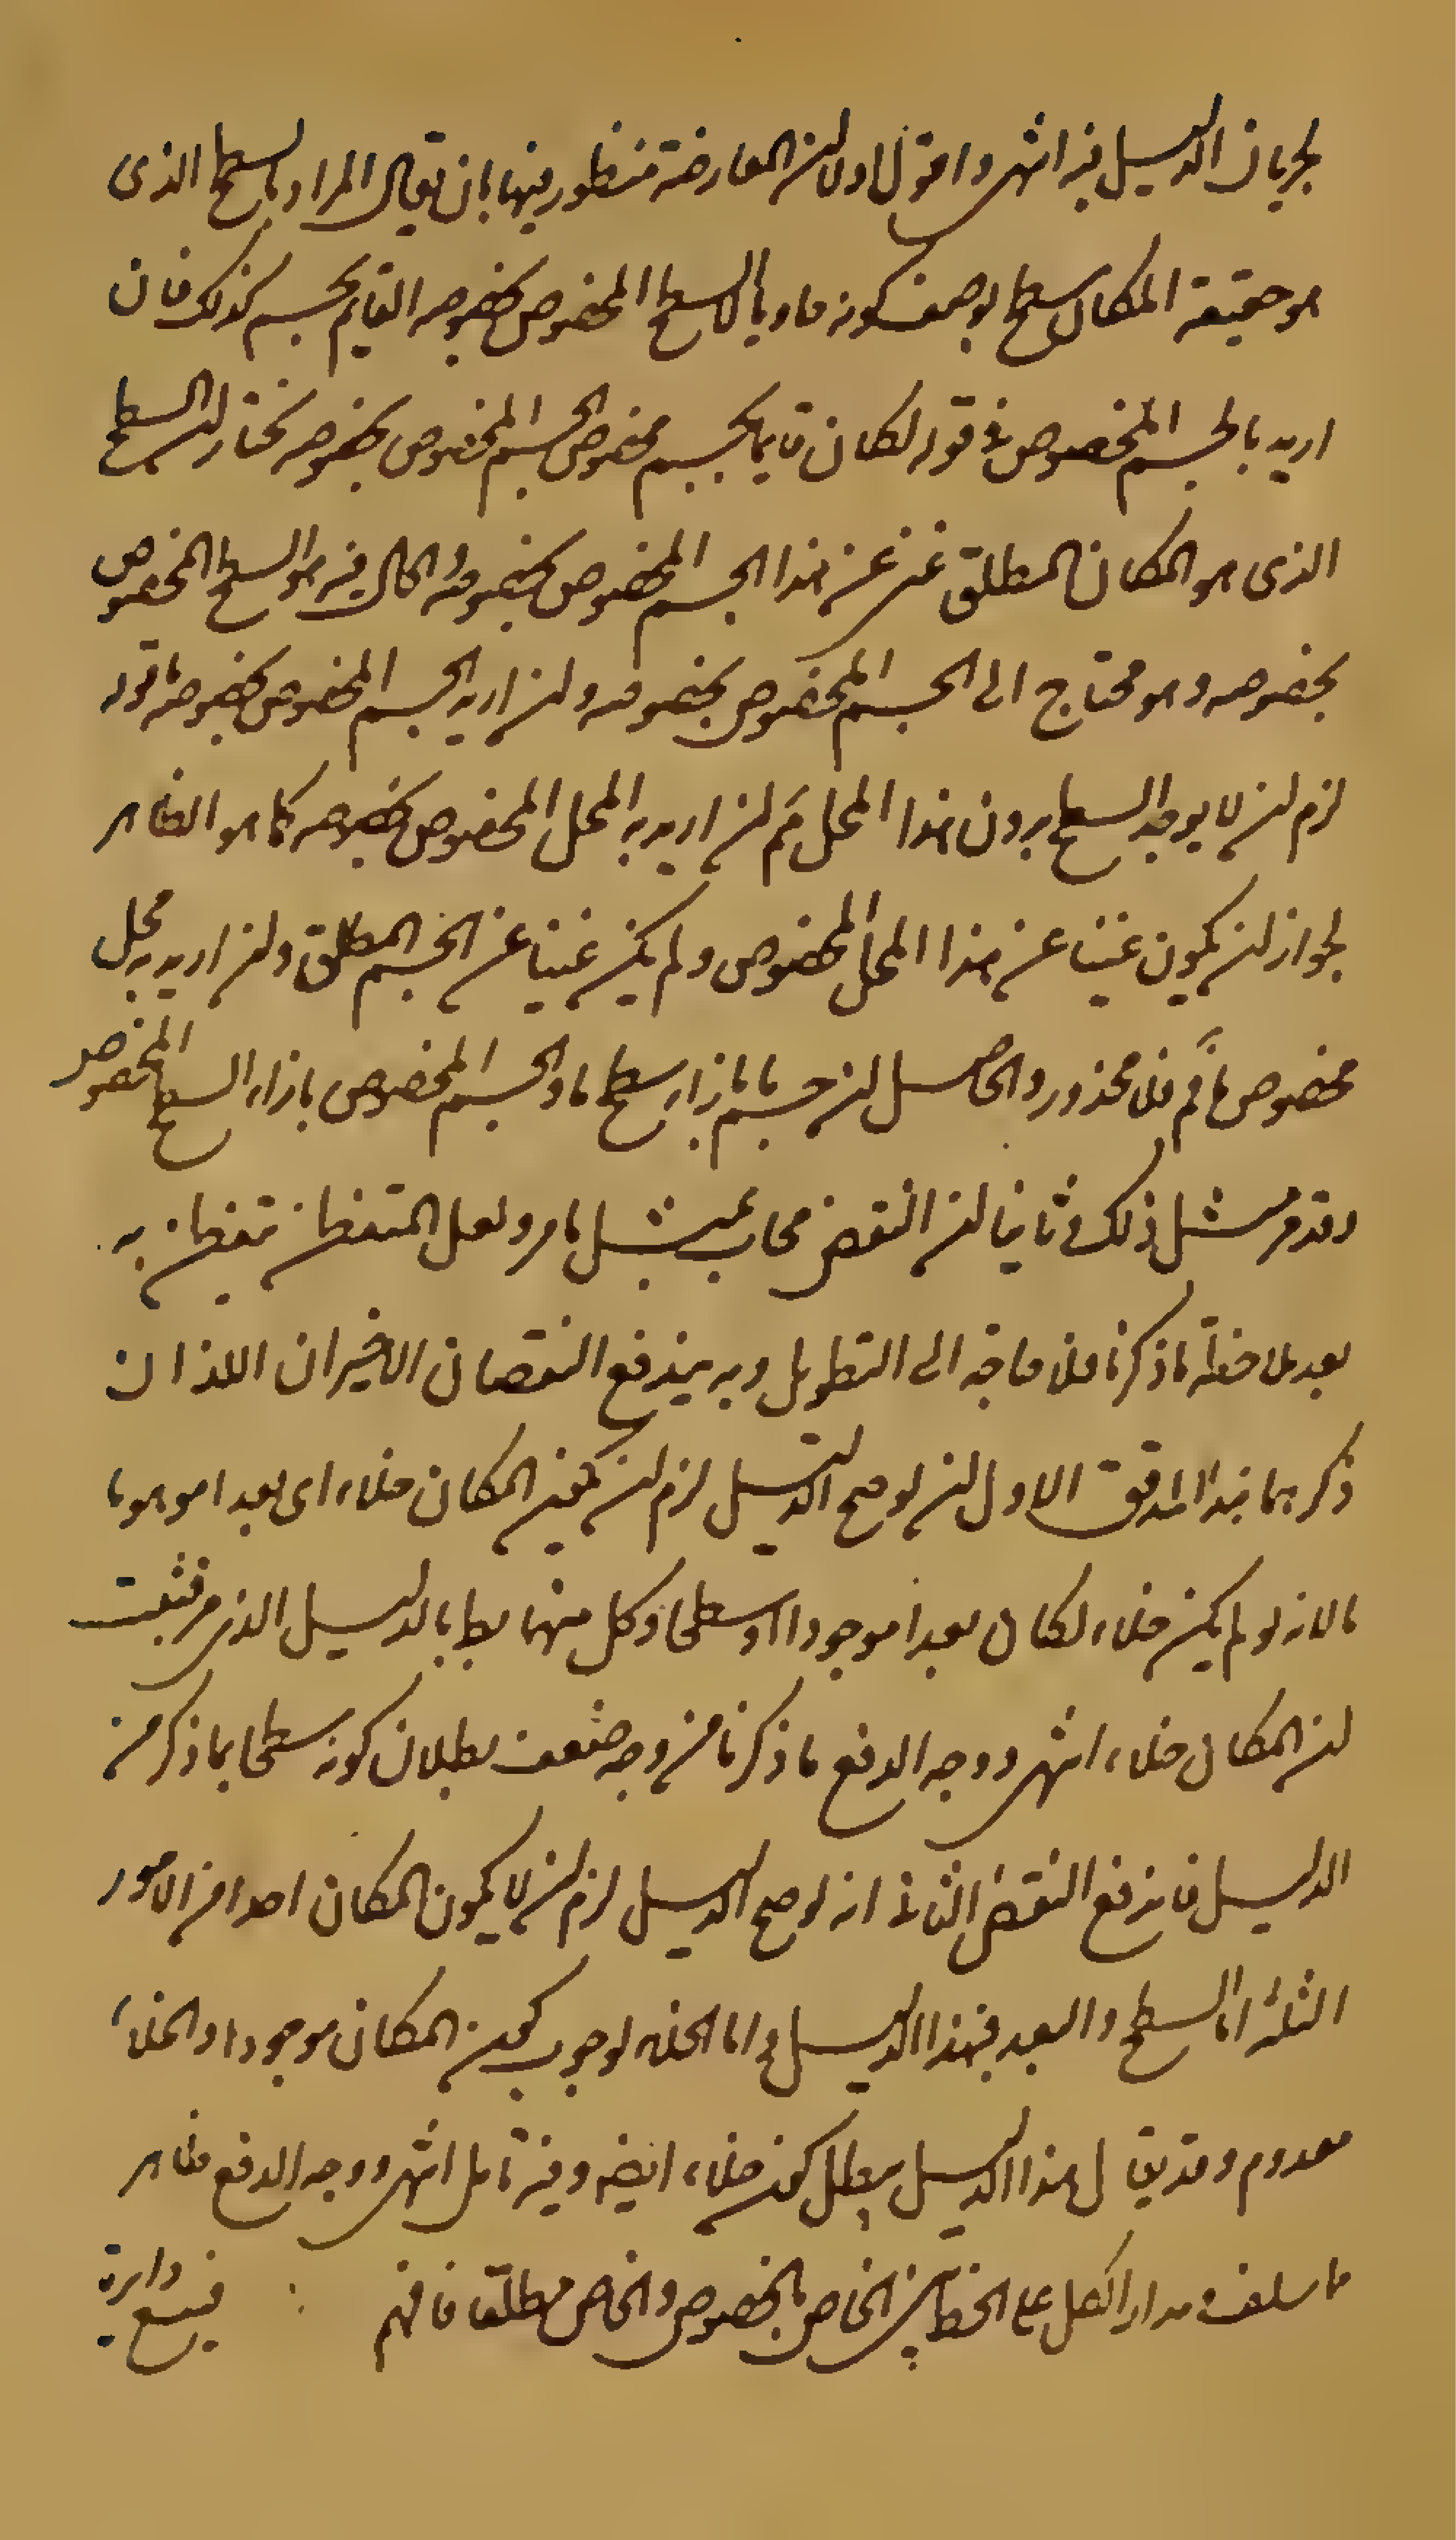 لجريان الدليل فيه انتهى واقول اولا ان المعارضة منظور فيها بان يقال المراد بالسطح الذى
هو حقيقة المكان سطح بوصف كونه حاويا لا السطح المخصوص بخصوصه القايم بجسم كذلك فان
اريد بالجسم المخصوص فى قوله لكان قايما بجسم مخصوص الجسم المخصوص بخصوصه نختار ان السطح
الذى هو المكان المطلق غنى عن هذا الجسم المخصوص بخصوصه والحال فيه هو السطح المخصوص
بخصوصه وهو محتاج الى الجسم المخصوص بخصوصه وان اريد الجسم المخصوص بخصوصه قوله
لزم ان لا يوجد السطح بدون هذا المحل ثم ان اريد به المحل المخصوص بخصوصه كما هو الظاهر
لجواز ان يكون غنيا عن هذا المحل المخصوص ولم يكن غنيا عن الجسم المطلق وان اريد به محل
مخصوص ما ثم فلا محذور والحاصل ان جسم ما بازاء سطح ما والجسم المخصوص بازاء السطح المخصوص
وقد مر مثل ذلك وثانيا ان النقض مجاب بمثل ما مر ولعل المتفطن تفطن به
بعد ملاحظة ما ذكرنا فلا حاجة الى التطويل وبه يندفع النقضان الاخيران اللذان
ذكرهما هذا المدقق الاول ان لو صح الدليل لزم ان يكون المكان خلاء اى بعدا موهوما
لانه لو لم يكن خلاء لكان بعدا موجودا او سطحا وكل منهما بط بالدليل الذى مر فثبت
ان المكان خلاء انتهى ووجه الدفع ما ذكرنا من وجه ضعف بطلان كونه سطحا بما ذكر من
الدليل فاندفع النقض الثانى انه لو صح الدليل لزم ان لا يكون المكان احدا من الامور
الثلثة اما السطح والبعد فبهذا الدليل واما الخلاء لوجوب كون المكان موجودا والخلاء
معدوم وقد يقال هذا الدليل يبطل كونه خلاء ايضه وفيه تامل انتهى ووجه الدفع ظاهر
ما سلف ومدار الكل على الخلط بين الخاص بالخصوص والخاص مطلقا فافهم